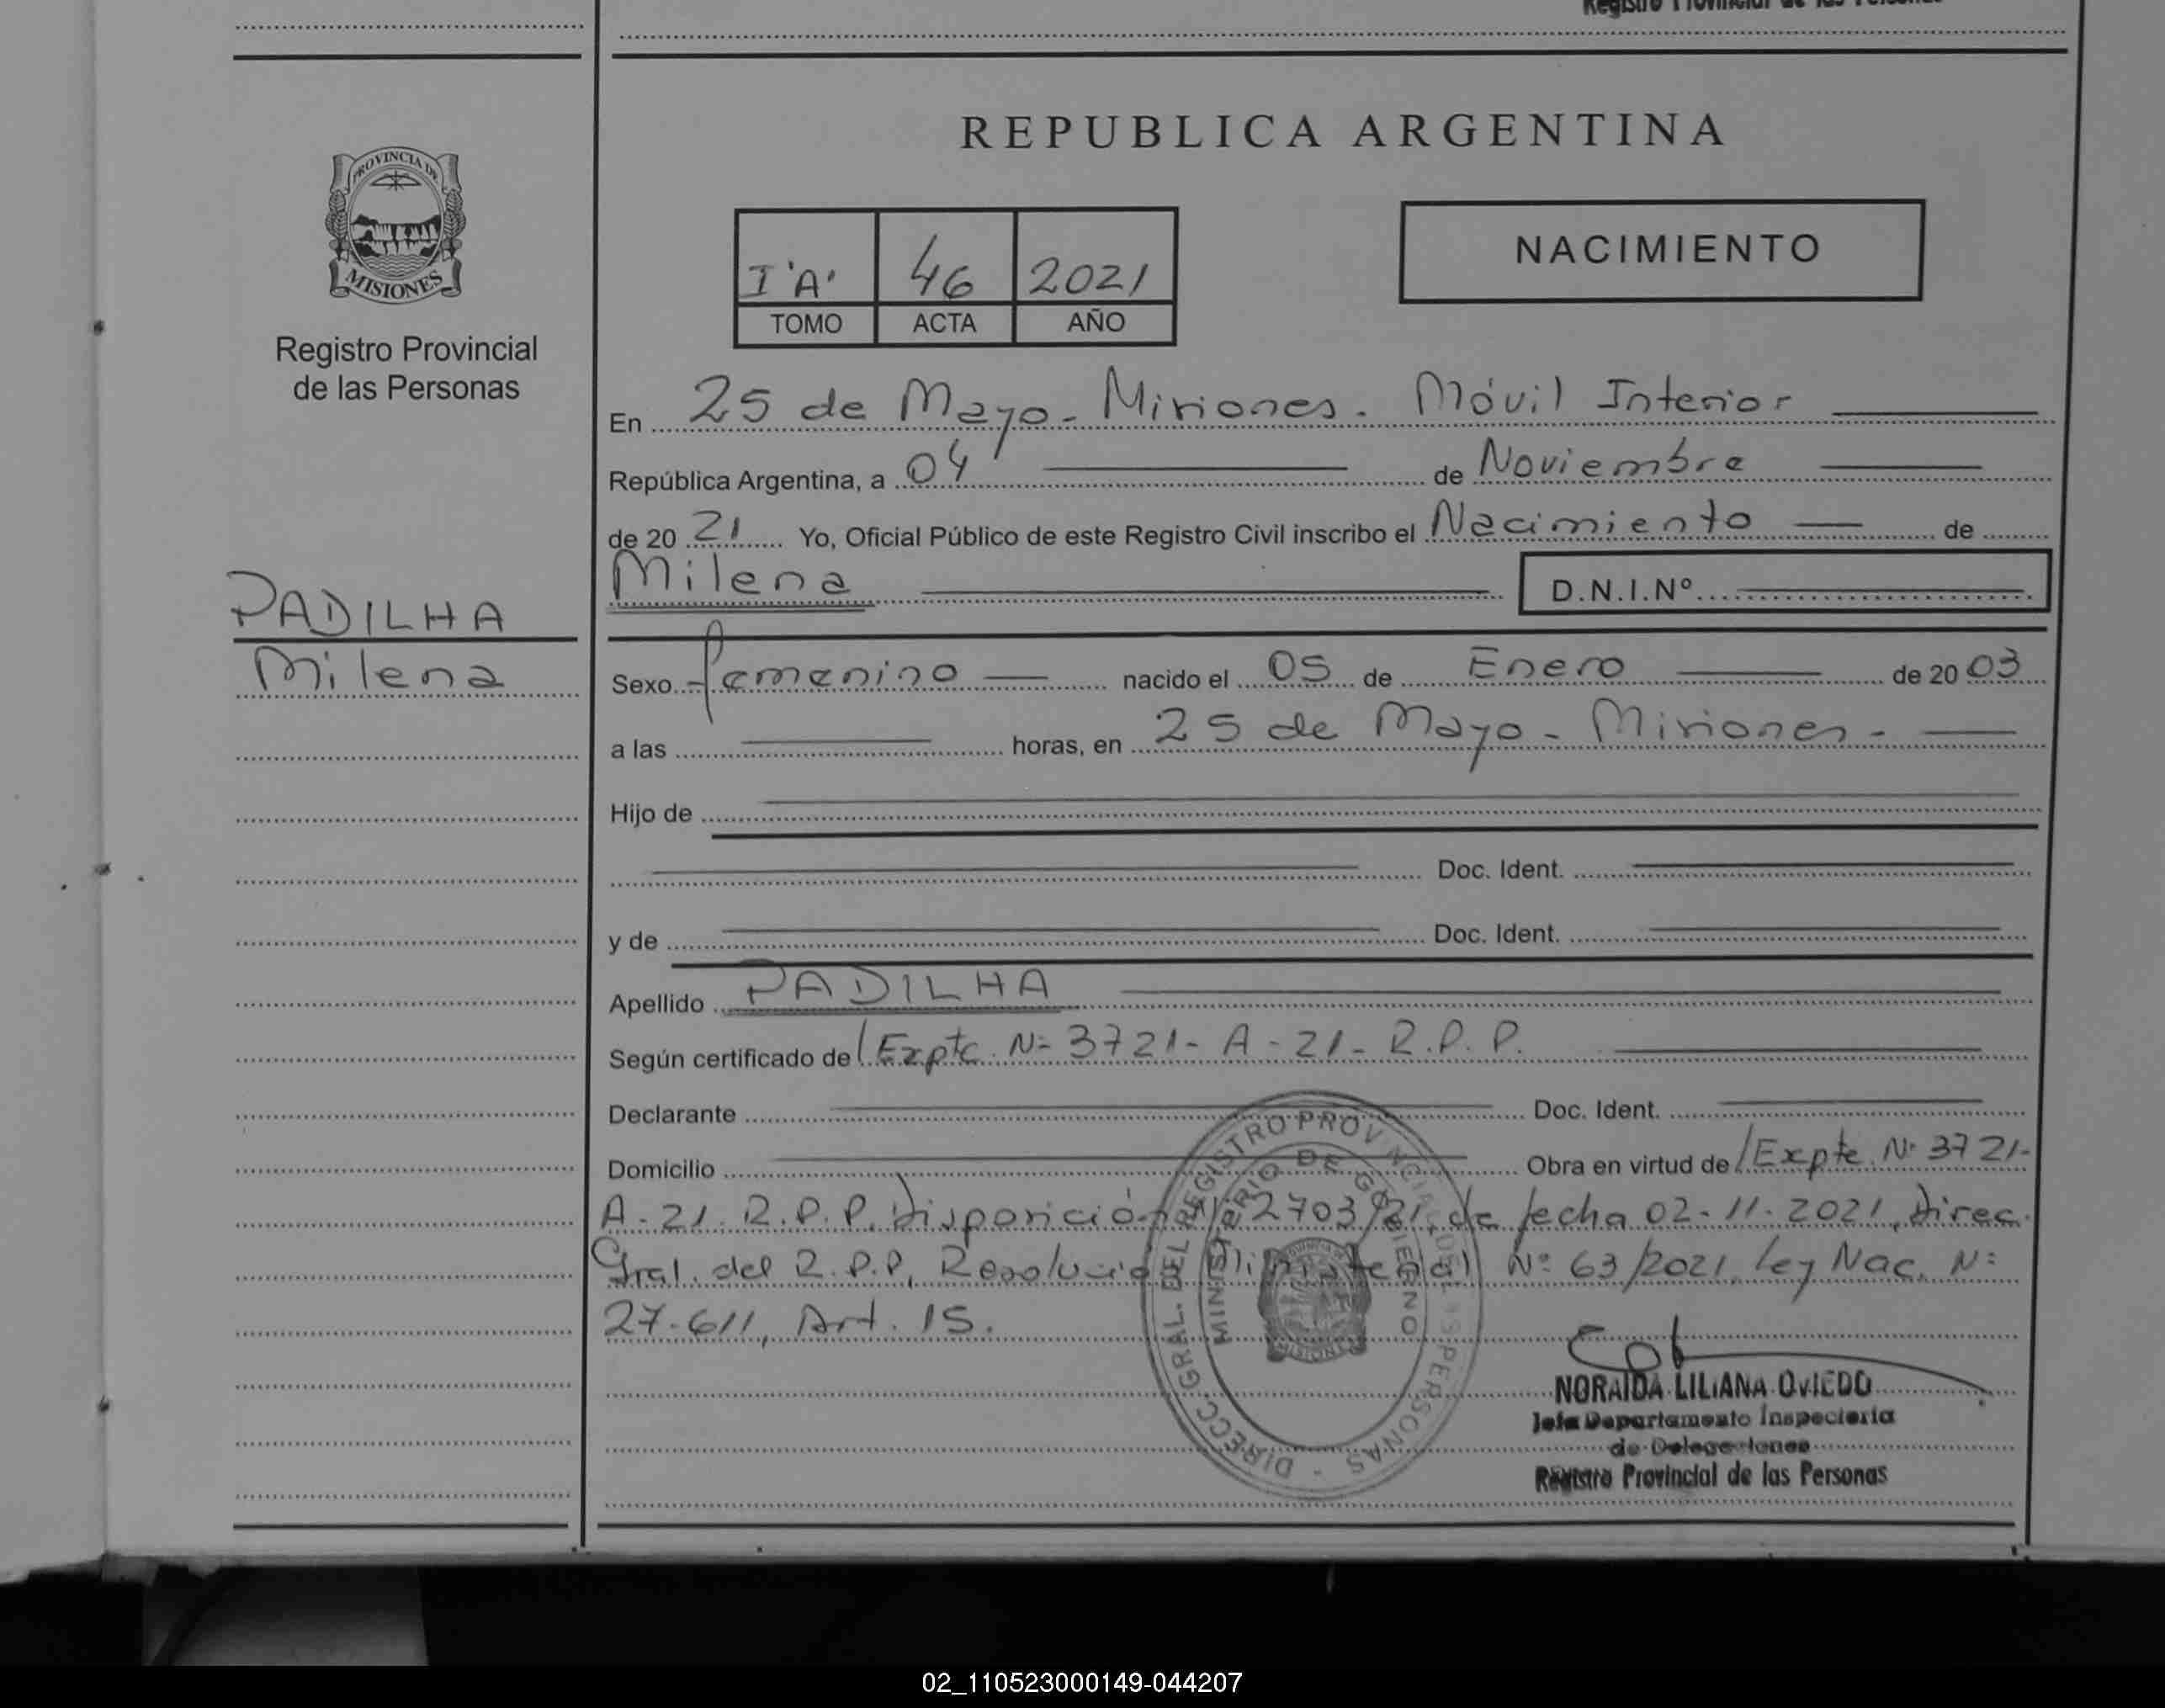 Registro Provincial de las Personas
REPUBLICA ARGENTINA
PROVINCIA DE
MISIONES
Registro Provincial
de las Personas
I 'A' 46 2021
TOMO ACTA AÑO
NACIMIENTO
En 25 de Mayo - Misiones. Móvil Interior
República Argentina, a 04 de Noviembre
de 20 21 Yo, Oficial Público de este Registro Civil inscribo el Nacimiento de
Milena D.N.I.Nº
PADILHA
Milena
Sexo femenino nacido el 05 de Enero de 20 03
a las horas, en 25 de Mayo - Misiones -
Hijo de
Doc. Ident.
y de Doc. Ident.
Apellido PADILHA
Según certificado de / Expte. Nº 3721- A - 21 - R.P.P.
Declarante Doc. Ident.
Domicilio Obra en virtud de / Expte. Nº 3721-
A - 21. R.P.P. Disposición Nº 2703/21, de fecha 02-11-2021, Direc.
Gral. del R.P.P, Resolución Ministerial Nº 63/2021, Ley Nac. Nº
27.611, Art. 15.
DIRECC. GRAL. DEL REGISTRO PROVINCIAL DE LAS PERSONAS -
MINISTERIO DE GOBIERNO
MISIONES
NORAIDA LILIANA OVIEDO
Jefa Departamento Inspectoria
de Delegaciones
Registro Provincial de las Personas
02_110523000149-044207